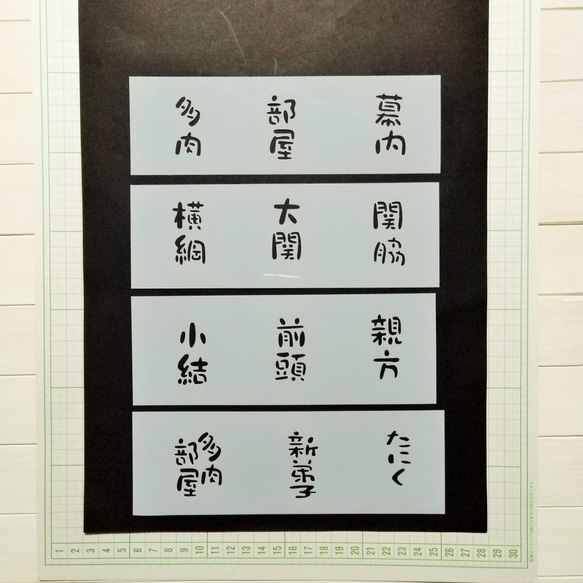 多肉
部屋
幕内
横綱
大関
関脇
小結
前頭
親方
多肉部屋
新弟子
たにく
1 2 3 4 5 6 7 8 9 10 11 12 13 14 15 16 17 18 19 20 21 22 23 24 25 26 27 28 29 30